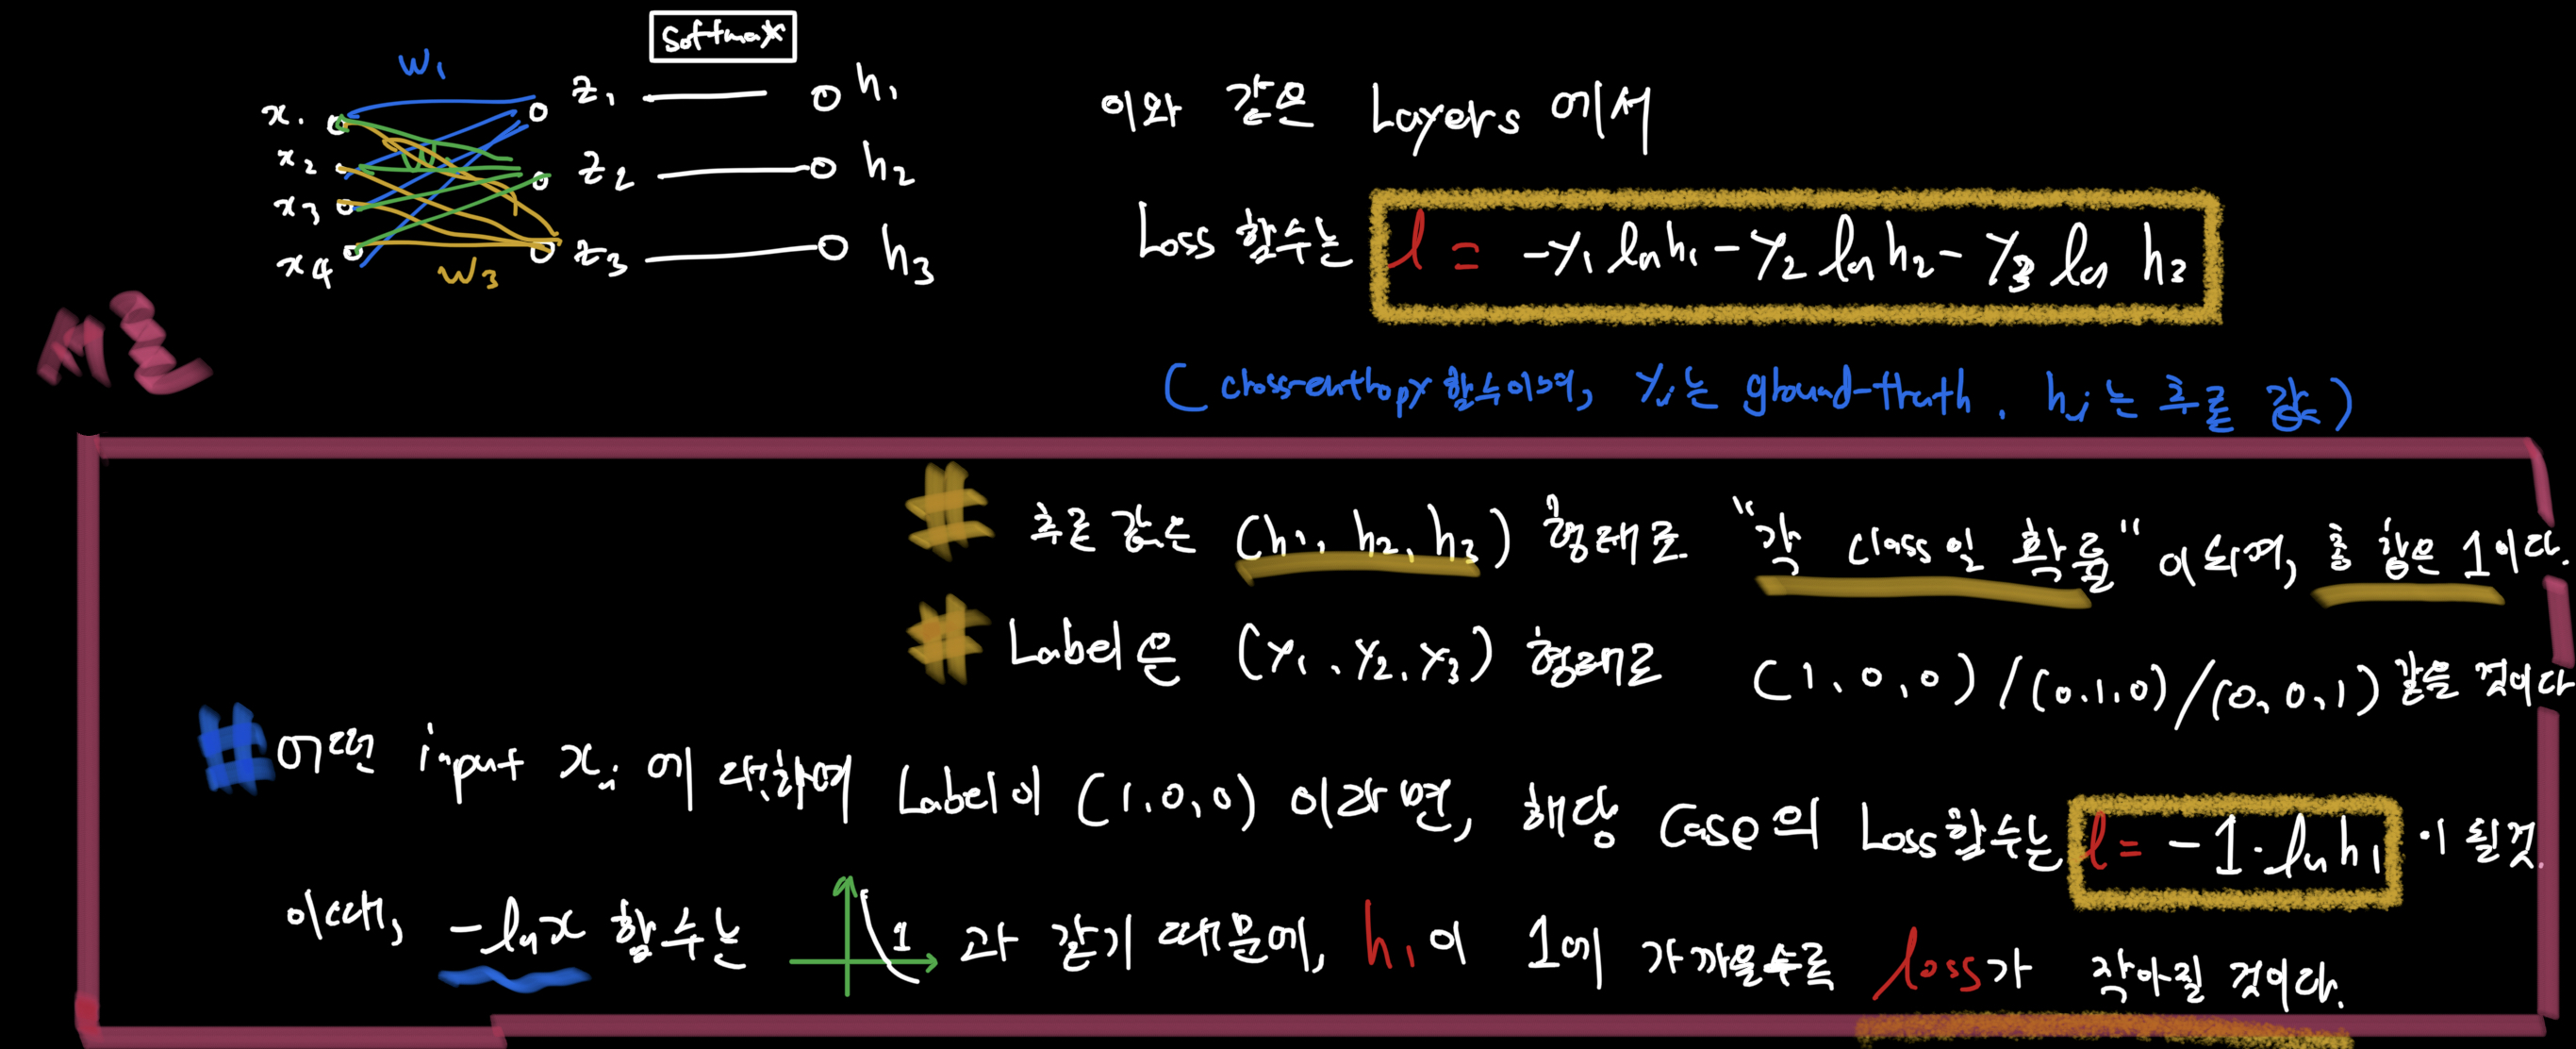 Softmax
W₁
x₁ z₁ h₁
x₂ W z₂ h₂
x₃
x₄ W₃ z₃ h₃
이와 같은 Layers 에서
Loss 함수는 l = -y₁ ln h₁ - y₂ ln h₂ - y₃ ln h₃
(cross-entropy 함수이며, yᵢ는 ground-truth, hᵢ는 추론 값)
ML
# 추론 값은 (h₁, h₂, h₃) 형태로 "각 class일 확률"이 되며, 총 합은 1이다.
# Label은 (y₁, y₂, y₃) 형태로 (1, 0, 0) / (0, 1, 0) / (0, 0, 1) 같을 것이다
# 어떤 input xᵢ에 대하여 Label이 (1, 0, 0) 이라면, 해당 Case의 Loss함수는 l = -1·ln h₁ 이 될것.
이때, -ln x 함수는 1 과 같기 때문에, h₁이 1에 가까울수록 loss가 작아질 것이다.